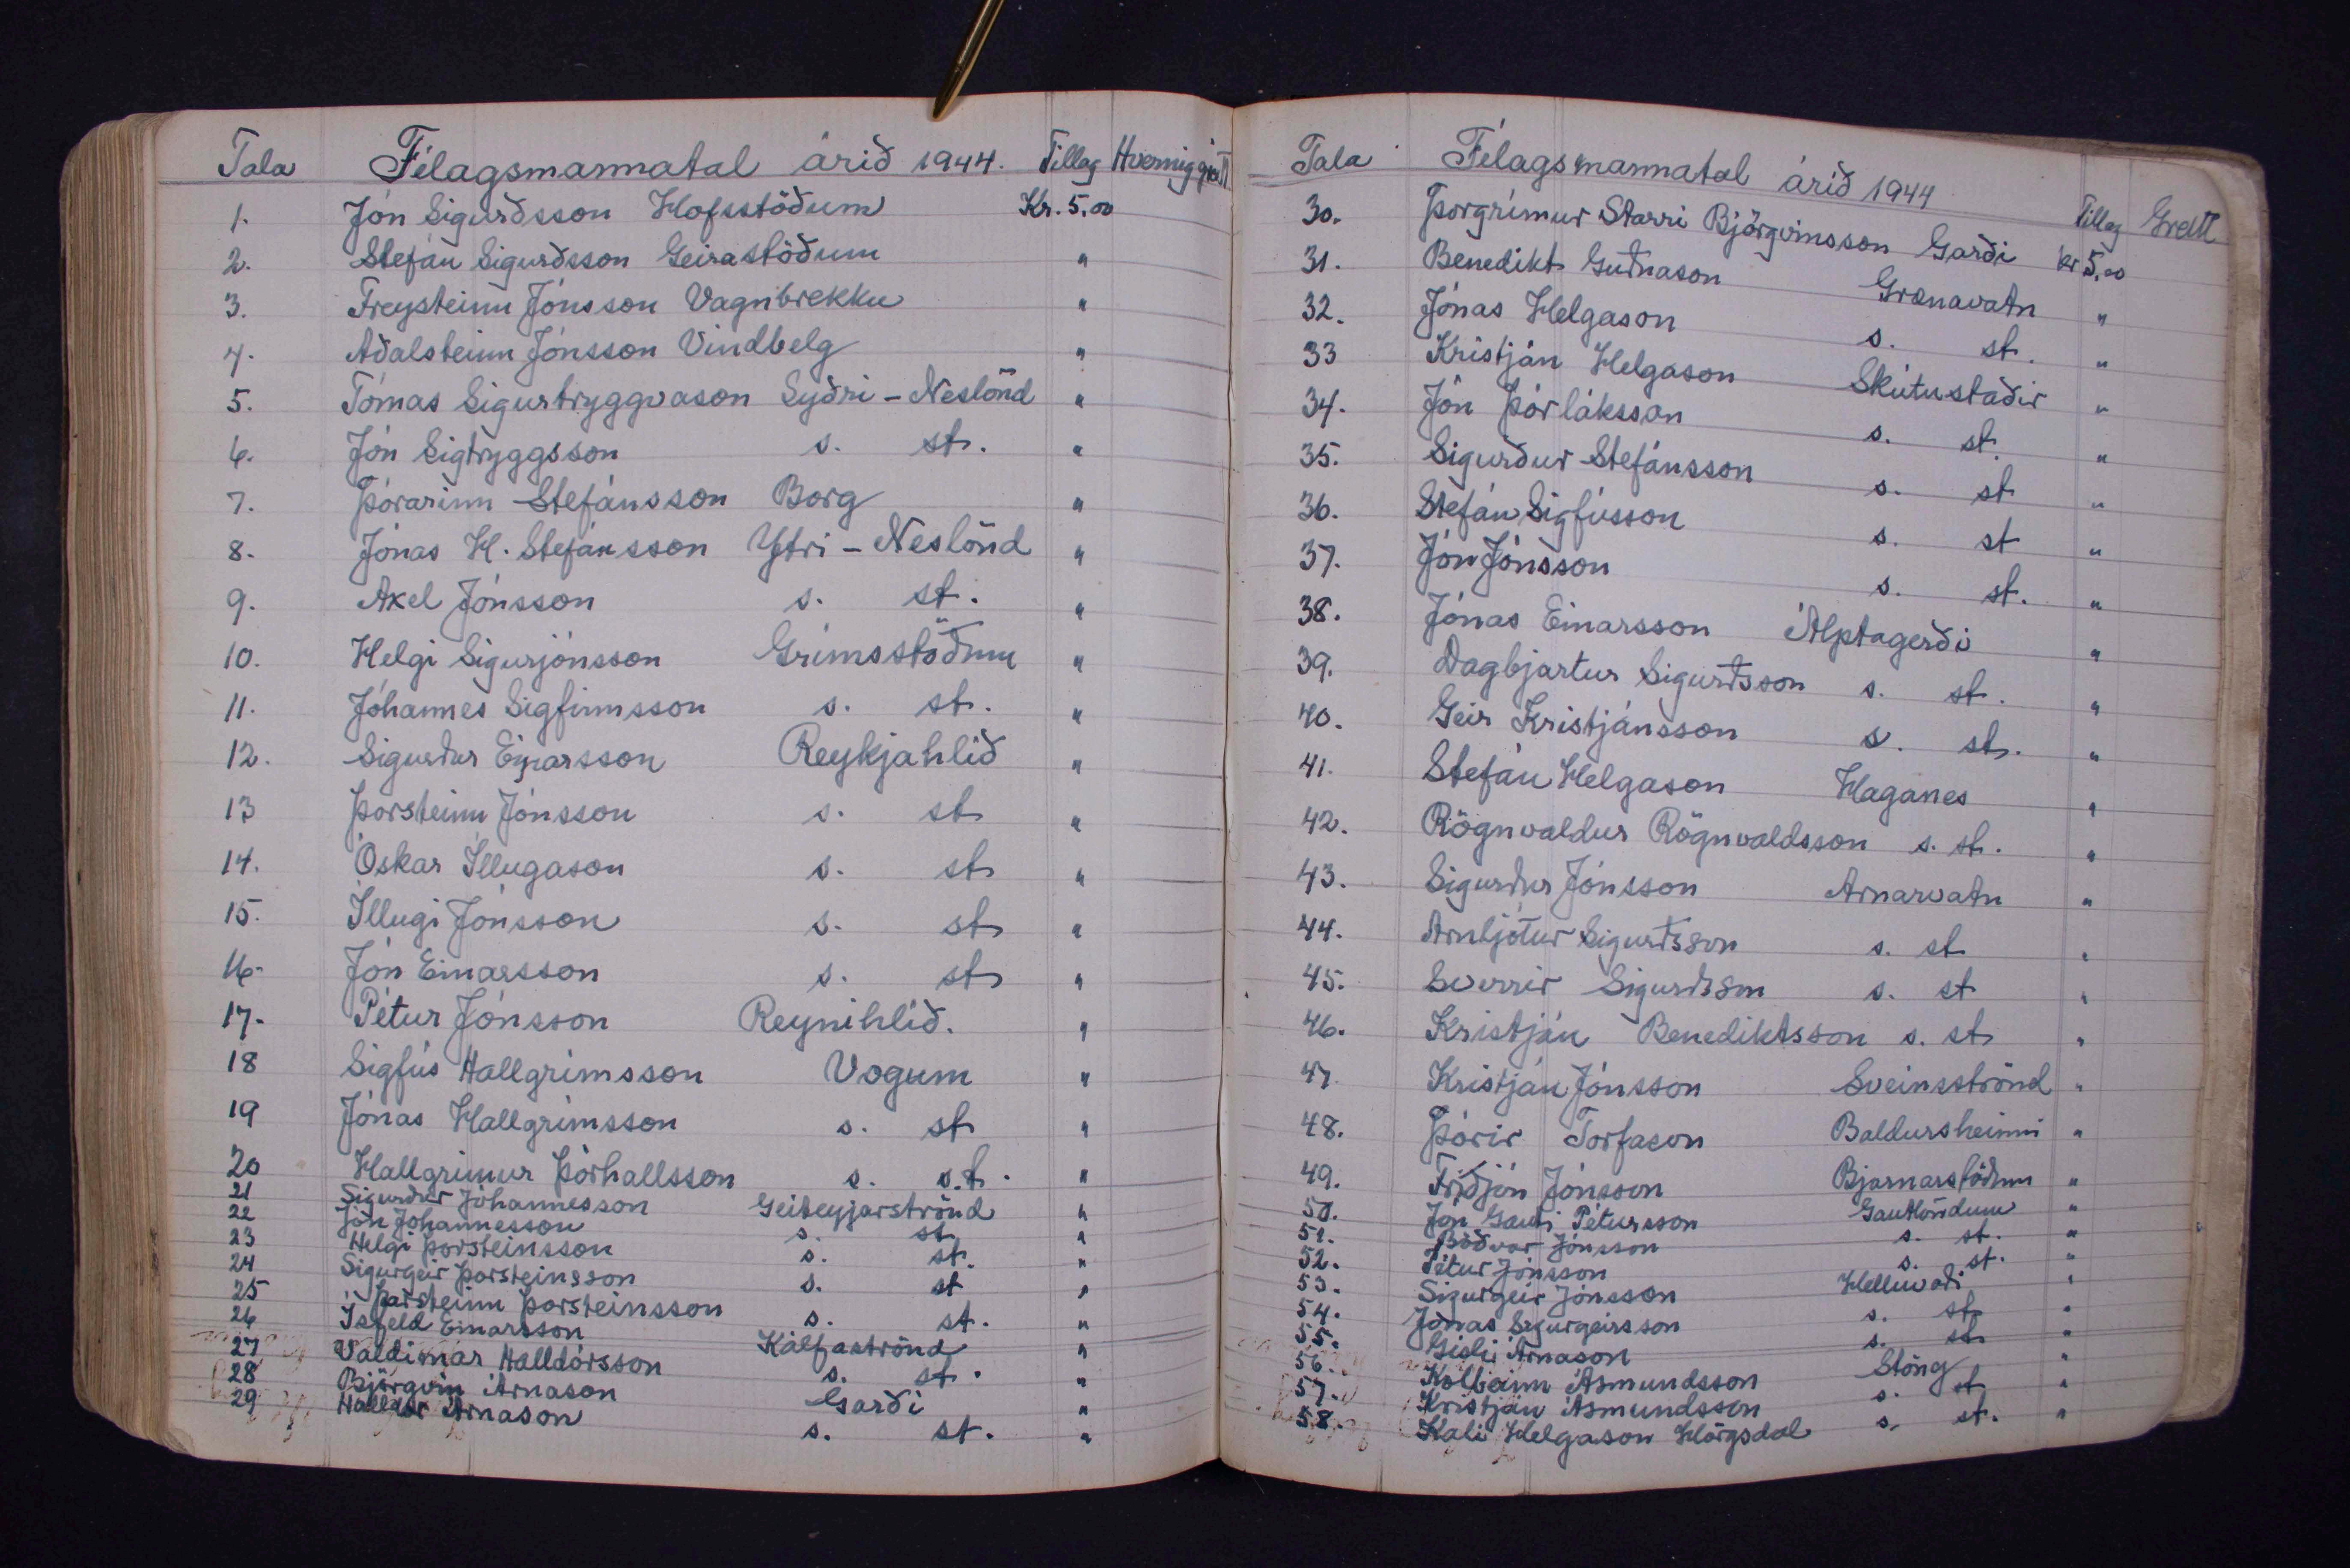 Tala Félagsmannatal árið 1944. Tillag Hvernig greitt
1. Jón Sigurðsson Hofsstöðum Kr. 5,00
2. Stefán Sigurðsson Geirastöðum "
3. Freysteinn Jónsson Vagnbrekku "
4. Aðalsteinn Jónsson Vindbelg "
5. Tómas Sigurtryggvason Syðri-Neslönd "
6. Jón Sigtryggsson s. st. "
7. Þórarinn Stefánsson Borg "
8. Jónas H. Stefánsson Ytri-Neslönd "
9. Axel Jónsson s. st. "
10. Helgi Sigurjónsson Grímsstöðum "
11. Jóhannes Sigfinnsson s. st. "
12. Sigurður Einarsson Reykjahlíð "
13 Þorsteinn Jónsson s. st "
14. Óskar Illugason s. st "
15. Illugi Jónsson s. st "
16. Jón Einarsson s. st "
17. Pétur Jónsson Reynihlíð. "
18 Sigfús Hallgrímsson Vogum "
19 Jónas Hallgrímsson s. st "
20 Hallgrímur Þórhallsson s. st. "
21 Sigurður Jóhannesson Geiteyjarströnd "
22 Jón Jóhannesson s. st "
23 Helgi Þorsteinsson s. st. "
24 Sigurgeir Þorsteinsson s. st "
25 Þorsteinn Þorsteinsson s. st. "
26 Ísfeld Einarsson Kálfaströnd "
27 Valdimar Halldórsson s. st. "
28 Björgvin Árnason Garði "
29 Halldór Árnason s. st. "
Tala Félagsmannatal árið 1944 Tillag Greitt
30. Þorgrímur Starri Björgvinsson Garði kr 5,00
31. Benedikt Guðnason Grænavatn "
32. Jónas Helgason s. st. "
33 Kristján Helgason Skútustaðir "
34. Jón Þórláksson s. st. "
35. Sigurður Stefánsson s. st "
36. Stefán Sigfússon s. st "
37. Jón Jónsson s. st. "
38. Jónas Einarsson Álptagerði "
39. Dagbjartur Sigurðsson s. st. "
40. Geir Kristjánsson s. st. "
41. Stefán Helgason Haganes "
42. Rögnvaldur Rögnvaldsson s. st. "
43. Sigurður Jónsson Arnarvatn "
44. Arnljótur Sigurðsson s. st "
45. Sverrir Sigurðsson s. st "
46. Kristján Benediktsson s. st "
47. Kristján Jónsson Sveinsströnd "
48. Þórir Torfason Baldursheimi "
49. Friðjón Jónsson Bjarnarstöðum "
50. Jón Gauti Pétursson Gautlöndum "
51. Böðvar Jónsson s. st. "
52. Pétur Jónsson s. st. "
53. Sigurgeir Jónsson Helluvaði "
54. Jónas Sigurgeirsson s. st "
55. Gísli Árnason s. st "
56. Kolbeinn Ásmundsson Stöng "
57. Kristján Ásmundsson s. st "
58. Káli Helgason Hörgsdal s. st. "